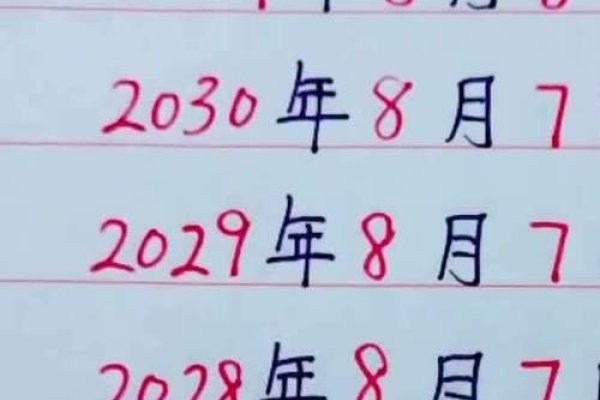 2030年8月7
2029年8月7
2028年8月7